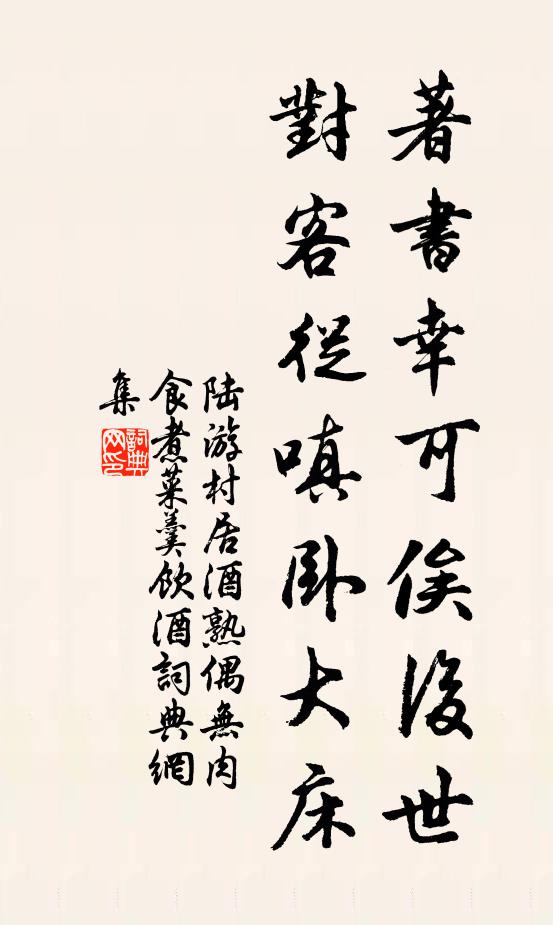 著書幸可俟後世
對客從嗔臥大床
陆游村居酒熟偶無肉
食煮菜羹飲酒詞典網
集
詞典
网印